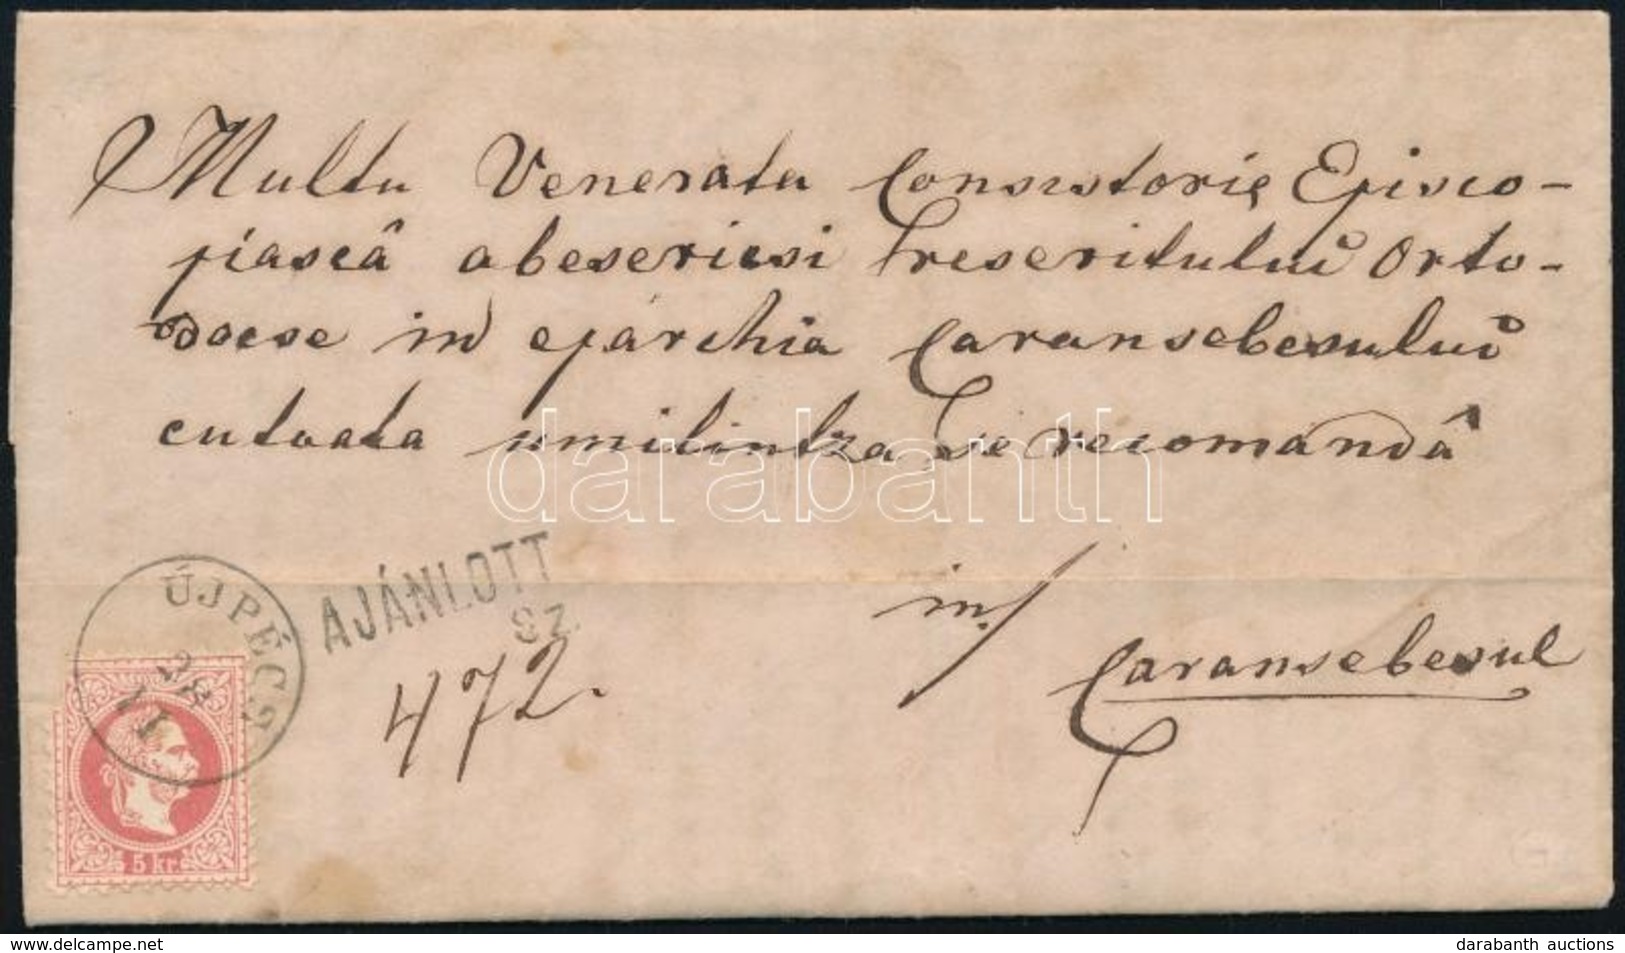 Multu Venerata Consistorie Episco-
piascâ a besericsi Greseritului Orto-
docse in epárchia Caransebesului
cu toata umilintza se recomandâ
ÚJPÉCS
28
11
AJÁNLOTT
Sz.
472.
in/
Caransebesul
5 kr.
darabanth
www.delcampe.net
darabanth auctions